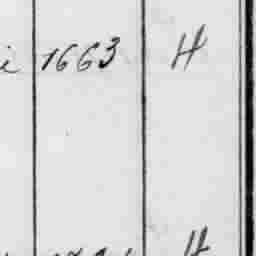 i 1663 H
H